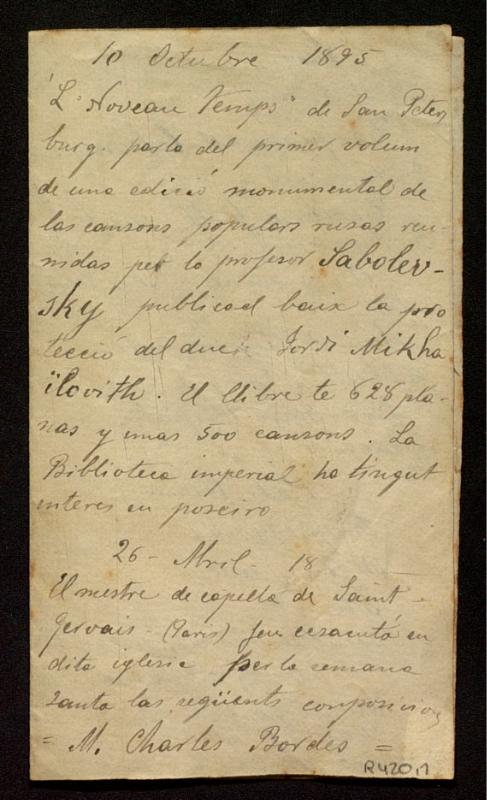 10 Octubre 1895
"L' Noveau Temps" de San Peters
burg. parla del primer volum
de una edició monumental de
las cansons populars rusas reu-
nidas per lo profesor Sabolev-
sky publicad baix la pro
tecció del duc Jordi Mikha
ïlovith. El llibre te 628 pla-
nas y unas 500 cansons. La
Biblioteca imperial ha tingut
interes en poseiro
26 - Abril - 18
El mestre de capella de Saint-
Gervais - (Paris) feu executá en
dita iglesie per la semana
santa las següents composicions
= M. Charles Bordes =
R420,1